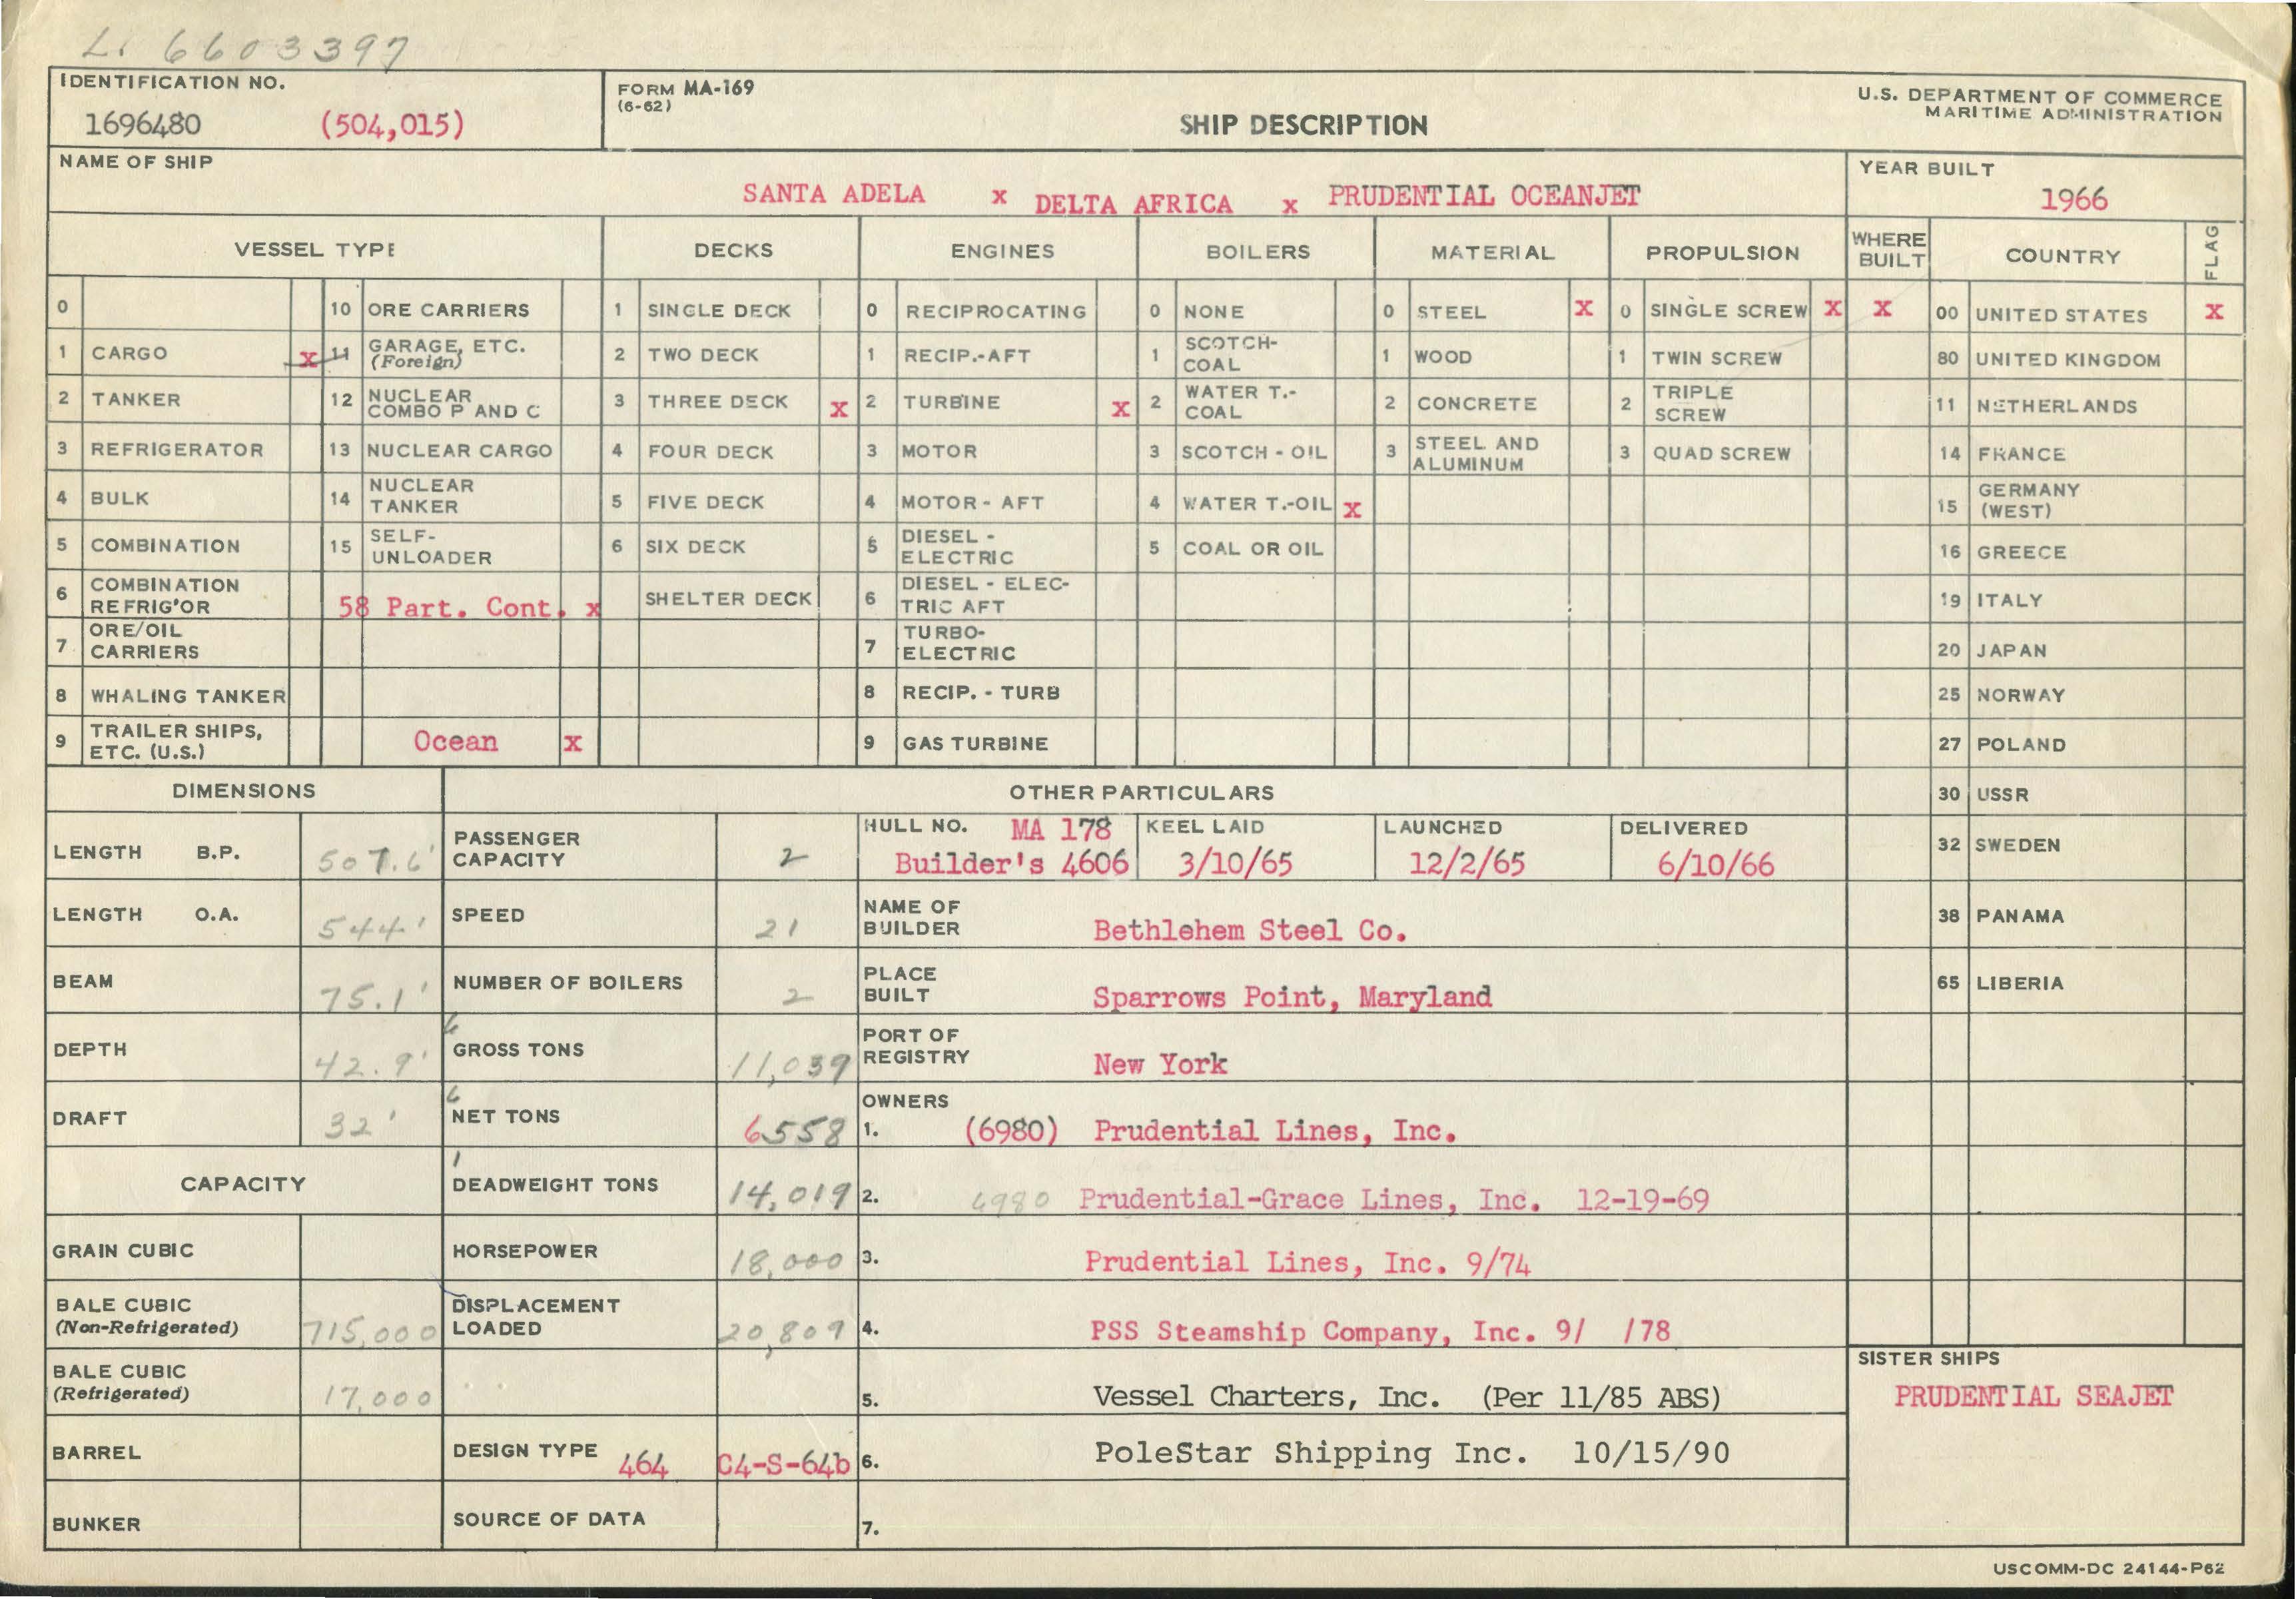 L. 6603397
IDENTIFICATION NO.
1696480 (504,015)
FORM MA-169
(6-62)
SHIP DESCRIPTION
U.S. DEPARTMENT OF COMMERCE
MARITIME ADMINISTRATION
NAME OF SHIP
SANTA ADELA x DELTA AFRICA x PRUDENTIAL OCEANJET
YEAR BUILT
1966
VESSEL TYPE
0
1 CARGO x
2 TANKER
3 REFRIGERATOR
4 BULK
5 COMBINATION
6 COMBINATION
REFRIG'OR
7 ORE/OIL
CARRIERS
8 WHALING TANKER
9 TRAILER SHIPS,
ETC. (U.S.)
10 ORE CARRIERS
11 GARAGE, ETC.
(Foreign)
12 NUCLEAR
COMBO P AND C
13 NUCLEAR CARGO
14 NUCLEAR
TANKER
15 SELF-
UNLOADER
58 Part. Cont. x
Ocean x
DECKS
1 SINGLE DECK
2 TWO DECK
3 THREE DECK x
4 FOUR DECK
5 FIVE DECK
6 SIX DECK
SHELTER DECK
ENGINES
0 RECIPROCATING
1 RECIP.-AFT
2 TURBINE x
3 MOTOR
4 MOTOR - AFT
5 DIESEL -
ELECTRIC
6 DIESEL - ELEC-
TRIC AFT
7 TURBO-
ELECTRIC
8 RECIP. - TURB
9 GAS TURBINE
BOILERS
0 NONE
1 SCOTCH-
COAL
2 WATER T.-
COAL
3 SCOTCH - OIL
4 WATER T.-OIL x
5 COAL OR OIL
MATERIAL
0 STEEL x
1 WOOD
2 CONCRETE
3 STEEL AND
ALUMINUM
PROPULSION
0 SINGLE SCREW x
1 TWIN SCREW
2 TRIPLE
SCREW
3 QUAD SCREW
WHERE
BUILT
COUNTRY
FLAG
x 00 UNITED STATES x
80 UNITED KINGDOM
11 NETHERLANDS
14 FRANCE
15 GERMANY
(WEST)
16 GREECE
19 ITALY
20 JAPAN
25 NORWAY
27 POLAND
30 USSR
32 SWEDEN
38 PANAMA
65 LIBERIA
DIMENSIONS
LENGTH B.P. 507.6'
LENGTH O.A. 544'
BEAM 75.1'
DEPTH 42.9'
DRAFT 32'
CAPACITY
GRAIN CUBIC
BALE CUBIC
(Non-Refrigerated) 715,000
BALE CUBIC
(Refrigerated) 17,000
BARREL
BUNKER
OTHER PARTICULARS
PASSENGER
CAPACITY 2
SPEED 21
NUMBER OF BOILERS 2
GROSS TONS 11,039
NET TONS 6558
DEADWEIGHT TONS 14,019
HORSEPOWER 18,000
DISPLACEMENT
LOADED 20,809
DESIGN TYPE 464 C4-S-64b
SOURCE OF DATA
HULL NO. MA 178
Builder's 4606
KEEL LAID
3/10/65
LAUNCHED
12/2/65
DELIVERED
6/10/66
NAME OF
BUILDER Bethlehem Steel Co.
PLACE
BUILT Sparrows Point, Maryland
PORT OF
REGISTRY New York
OWNERS
1. (6980) Prudential Lines, Inc.
2. 6980 Prudential-Grace Lines, Inc. 12-19-69
3. Prudential Lines, Inc. 9/74
4. PSS Steamship Company, Inc. 9/ /78
5. Vessel Charters, Inc. (Per 11/85 ABS)
6. PoleStar Shipping Inc. 10/15/90
7.
SISTER SHIPS
PRUDENTIAL SEAJET
USCOMM-DC 24144-P62